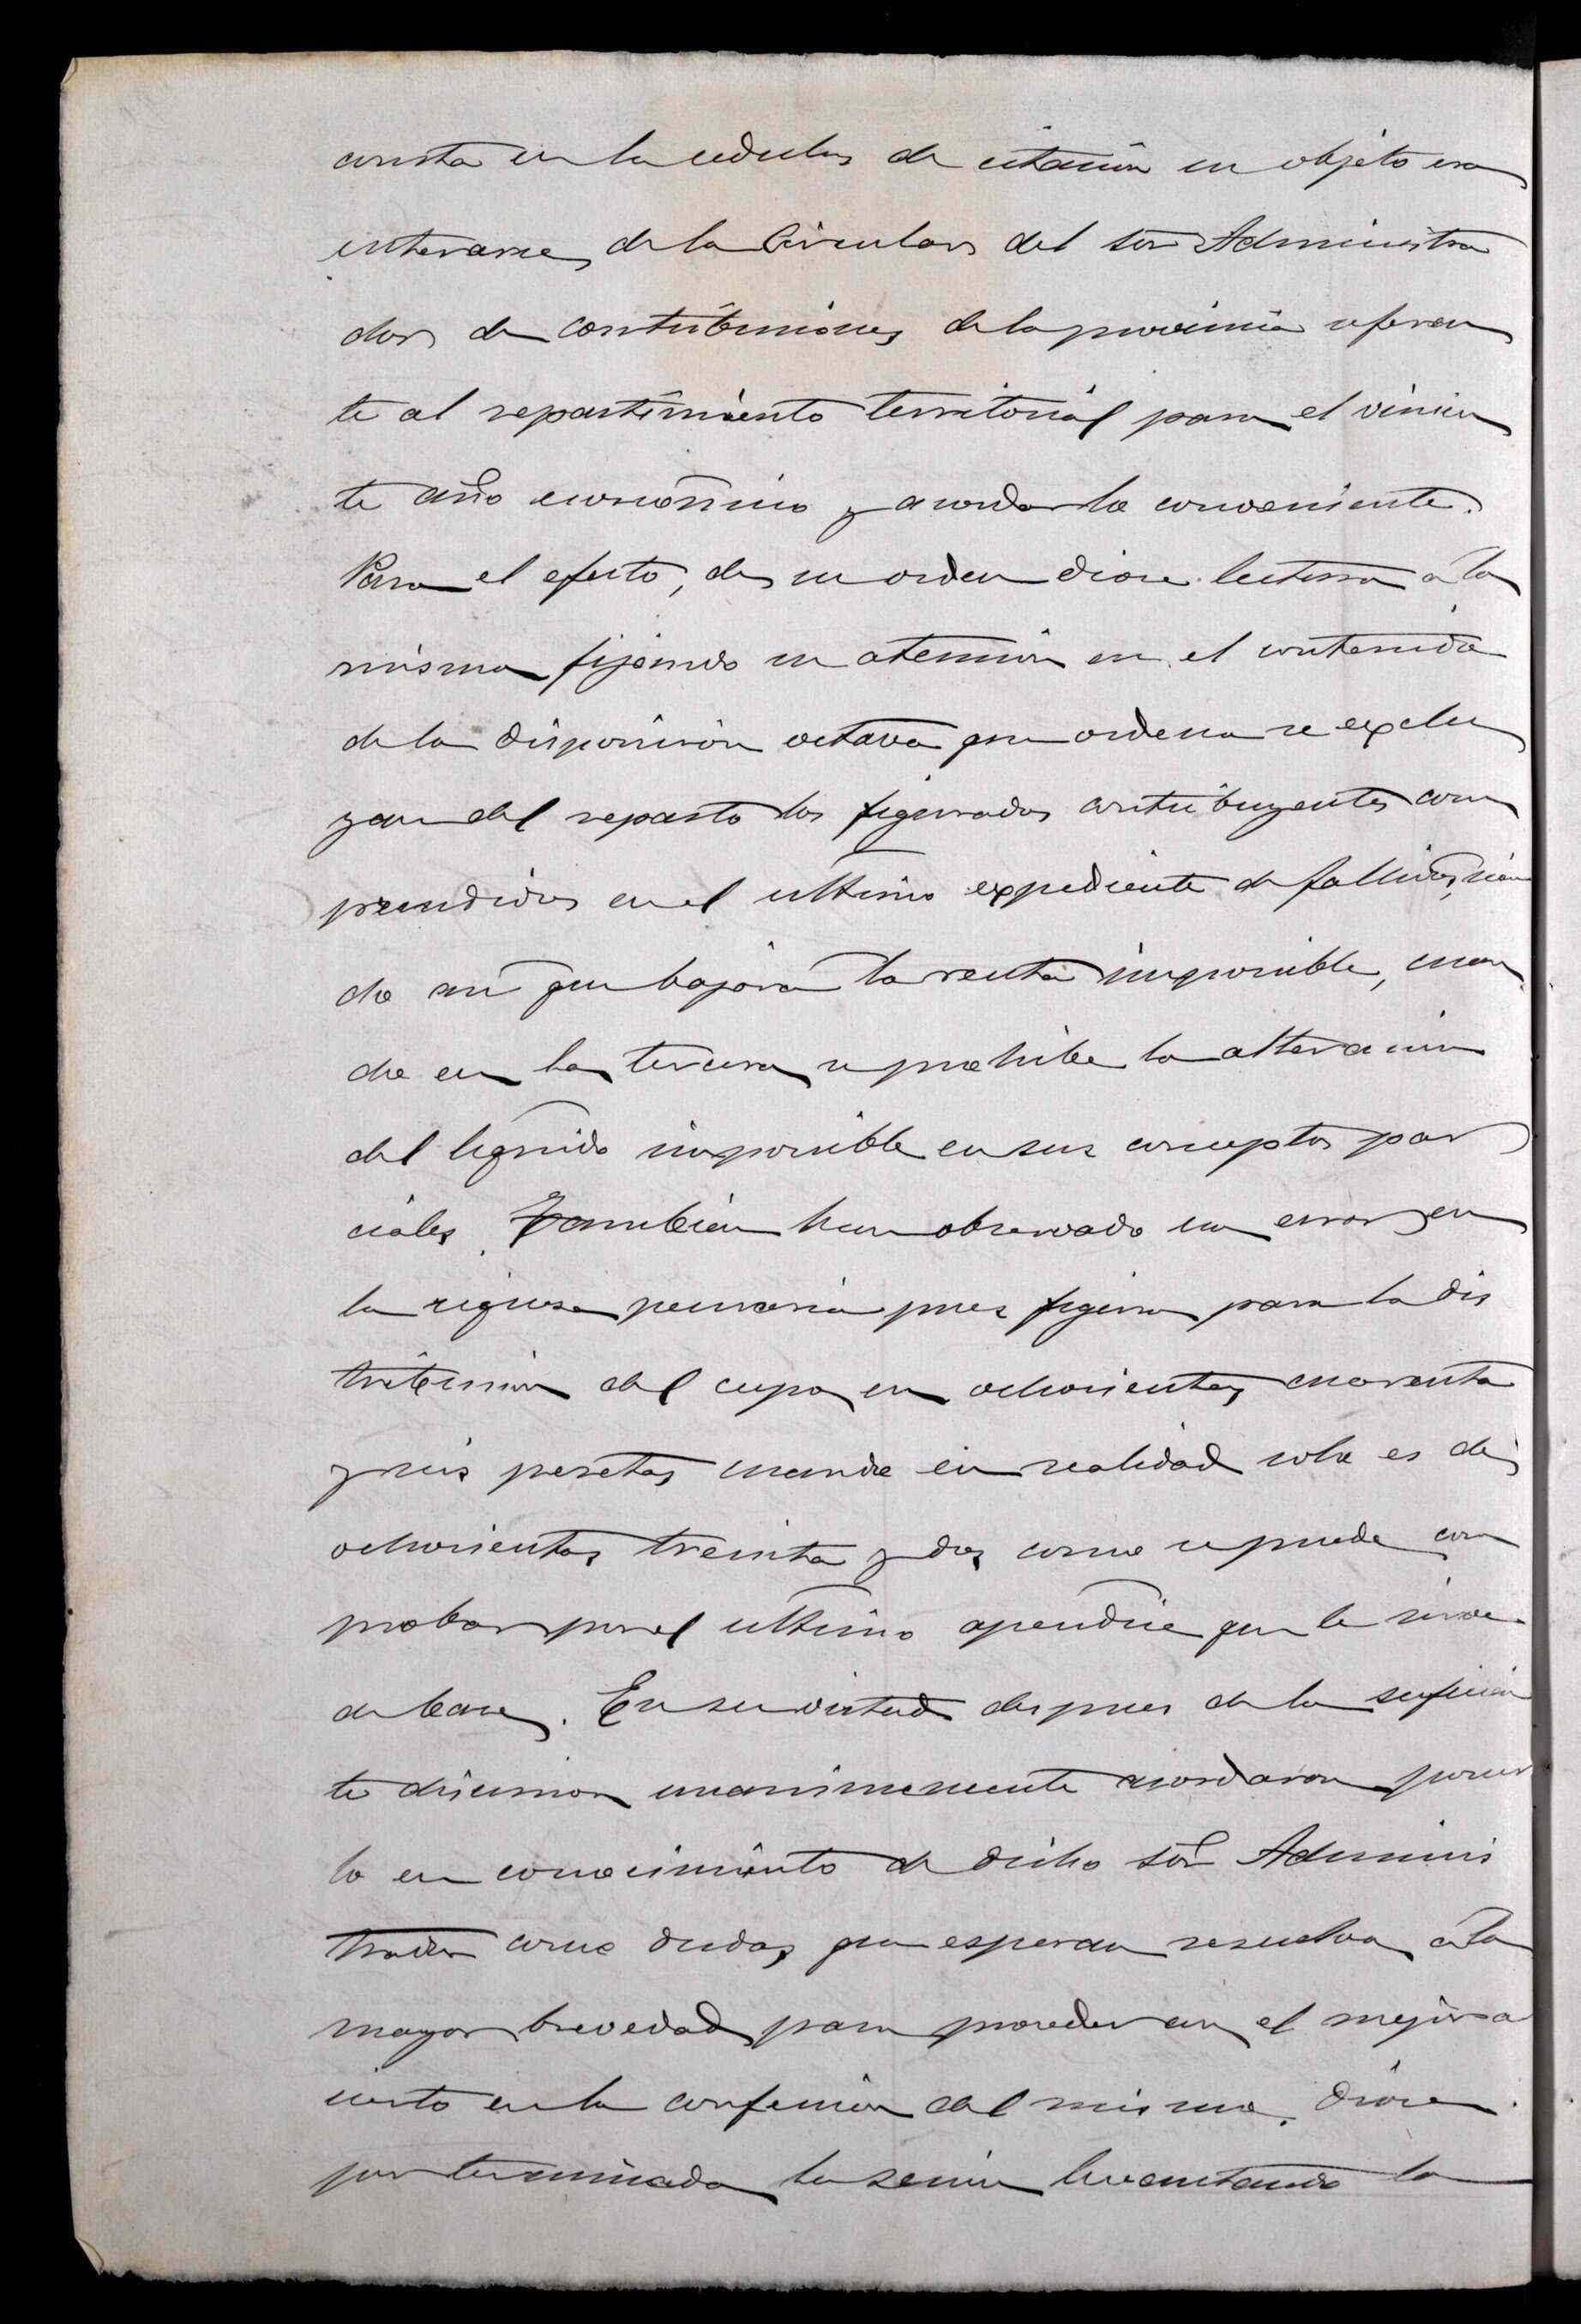 consta en la cedulas de citación su objeto era
enterarse de la Circular del Sor Administra
dor de contribuciones de la provincia referen
te al repartimiento territorial para el vinien
te año económico y acordar lo conveniente.
Para el efecto, de su orden diose lectura a la
misma fijando su atención en el contenido
de la disposición octava que ordena se exclu
yan del reparto los figurados contribuyentes com
prendidos en el ultimo expediente de fallidos, sien
do asi que bajará la renta imponible, cuan
do en la tercera se prohibe la alteración
del liquido imponible en sus conceptos par
ciales. Tambien han observado un error en
la riqueza pecuaria pues figura para la dis
tribución del cupo en ochocientas cuarenta
y seis pesetas cuando en realidad solo es de
ochocientas treinta y dos como se puede com
probar por el ultimo apendice que le sirve
de base. En su virtud despues de la suficien
te discusion unanimemente acordaron poner
lo en conocimiento de dicho Sor Adminis
trador como dudas que esperan resuelva a la
mayor brevedad para proceder con el mejor a
cierto en la confeccion del mismo. Diose
por terminada la sesion levantando la